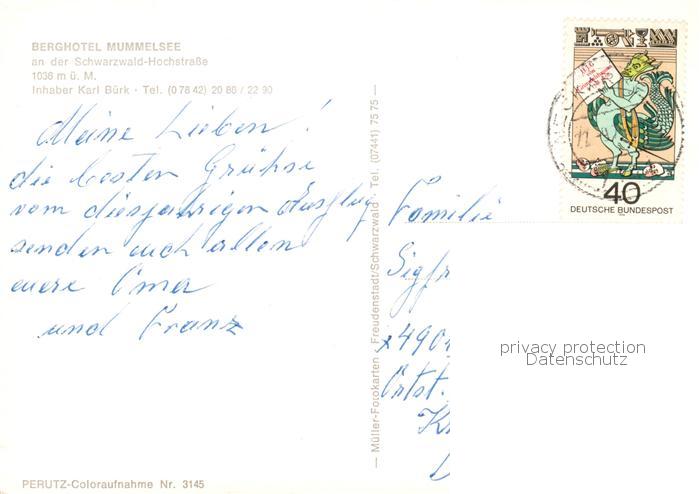 BERGHOTEL MUMMELSEE
an der Schwarzwald-Hochstraße
1036 m ü. M.
Inhaber Karl Bürk · Tel. (0 78 42) 20 80 / 22 90
Meine Lieben!
die besten Grühse
vom diesjahrigen Ausflug
senden euch allen
eure Oma
und Franz
— Müller-Fotokarten · Freudenstadt/Schwarzwald · Tel. (07441) 75 75 —
Familie
Sigfr
Ortst.
40
DEUTSCHE BUNDESPOST
privacy protection
Datenschutz
PERUTZ-Coloraufnahme Nr. 3145